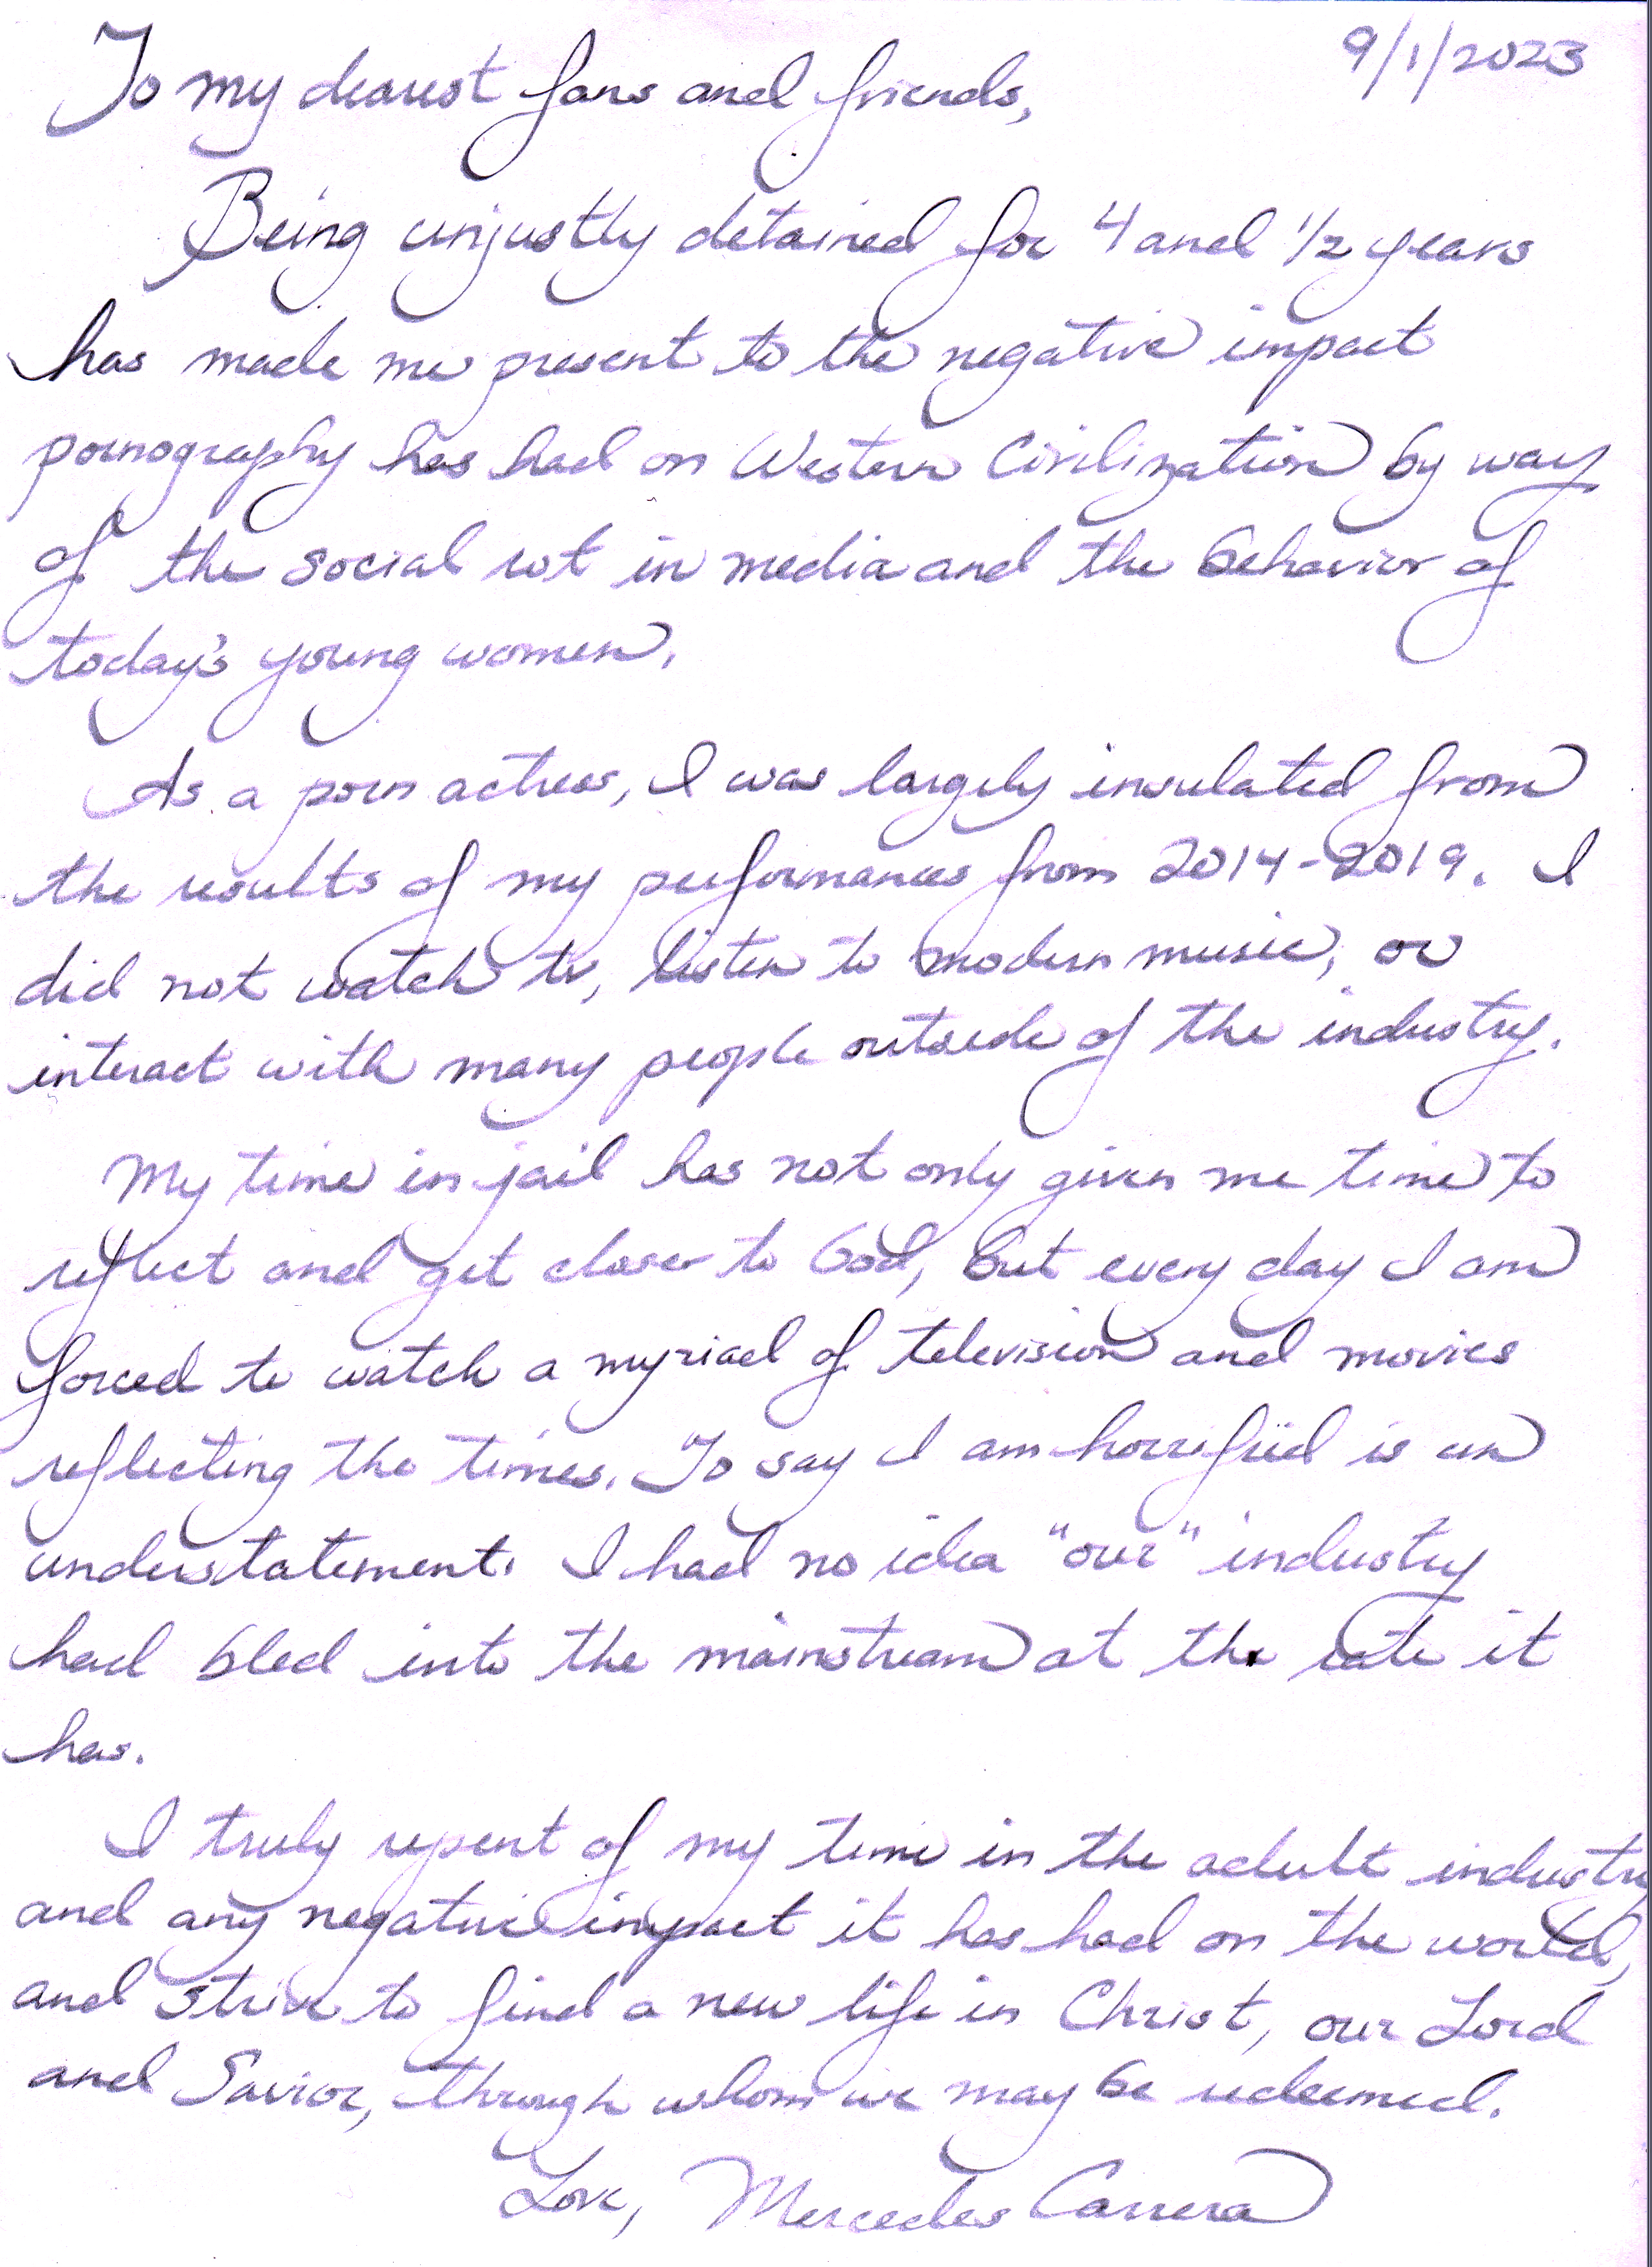 9/1/2023
To my dearest fans and friends,
Being unjustly detained for 4 and 1/2 years
has made me present to the negative impact
pornography has had on Western Civilization by way
of the social rot in media and the behavior of
today's young women.
As a porn actress, I was largely insulated from
the results of my performances from 2014-2019. I
did not watch tv, listen to modern music, or
interact with many people outside of the industry.
My time in jail has not only given me time to
reflect and get closer to God, but every day I am
forced to watch a myriad of television and movies
reflecting the times. To say I am horrified is un
understatement. I had no idea "our" industry
had bled into the mainstream at the rate it
has.
I truly repent of my time in the adult industry
and any negative impact it has had on the world,
and strive to find a new life in Christ, our Lord
and Savior, through whom we may be redeemed.
Love, Mercedes Carrera